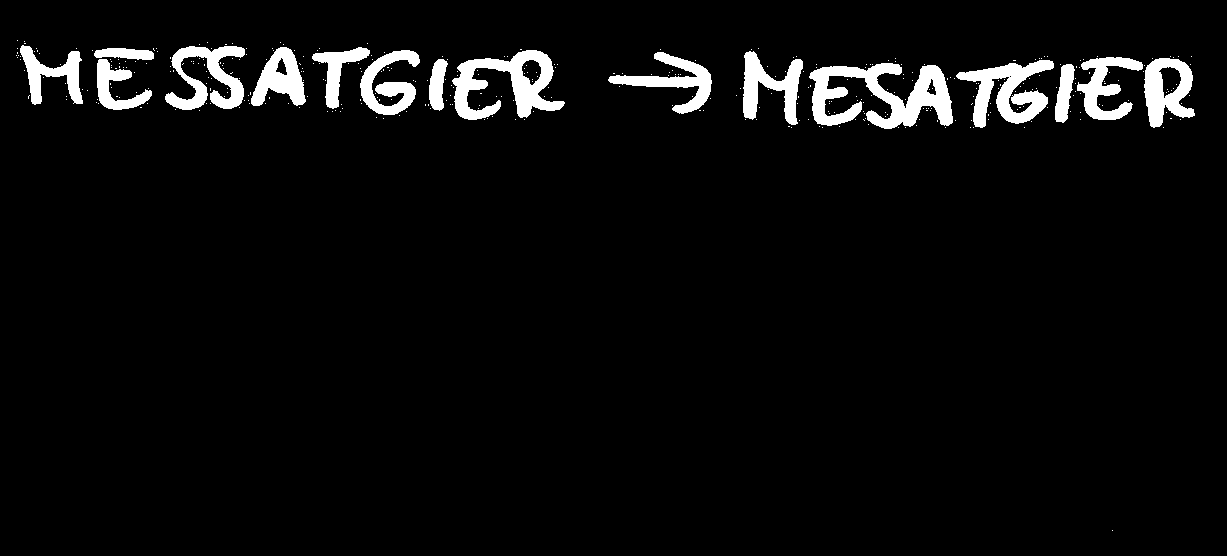 MESSATGIER → MESATGIER